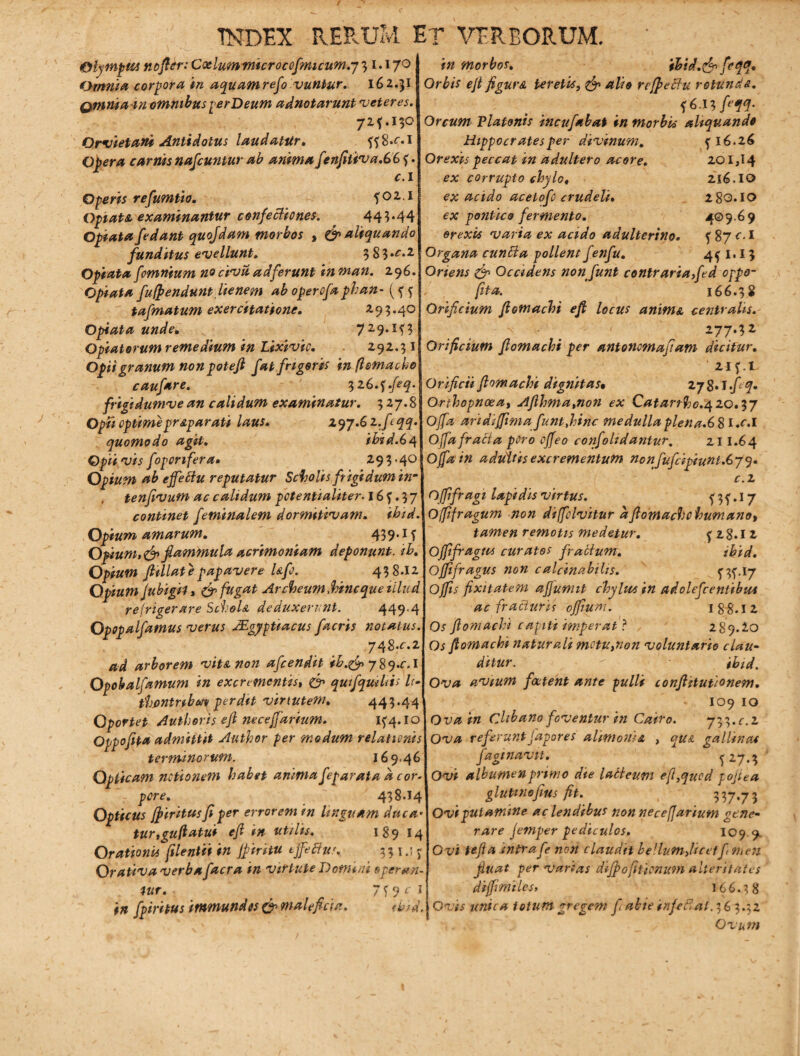 INDEX RERUM ET VERBORUM.
Olympus noster: Cœlum microcosmicum. 731.170
Omnia corpora in aquam reso vuntur. 162.31
Omnia in omnibus per Deum adnotarunt veteres.
725.130
Orvietani Antidotus laudatur. 558.c.1
Opera carnis nascuntur ab anima sensitiva. 665.
c.1
Operis resumtio. 502.1
Opiata examinantur confectiones. 443.44
Opiata sedant quosdam morbos, & aliquando
funditus evellunt. 383.c.2
Opiata somnium no civũ adferunt in man. 296.
Opiata suspendunt lienem ab operosa phan- (55
tasmatum exercitatione. 293.40
Opiata unde. 729.153
Opiatorum remedium in Lixivio. 292.31
Opii granum non potest sat frigoris in stomacho
causare. 326.5.seq.
frigidumve an calidum examinatur. 327.8
Opii optime præparati laus. 297.62.seqq.
quomodo agit. ibid.64
Opii vis soporifera. 293.40
Opium ab effectu reputatur Scholis frigidum in-
tensivum ac calidum potentialiter. 165.37
continet seminalem dormitivam. ibid.
Opium amarum. 439.15
Opium, & flammula acrimoniam deponunt. ib.
Opium stillat è papavere læso. 438.12
Opium subigit, & fugat Archeum, hincque illud
refrigerare Scholæ deduxerunt. 449.4
Opopalsamus verus Ægyptiacus sacris notatus.
748.c.2
ad arborem vitæ non ascendit ib. & 789.c.1
Opobalsamum in excrementis, & quisquiliis li-
thontribon perdit virtutem. 443.44
Oportet Authoris est necessarium. 154.10
Opposita admittit Author per modum relationis
terminorum. 169.46
Opticam notionem habet anima separata à cor-
pore. 438.14
Opticus spiritus si per errorem in linguam duca-
tur, gustatui est in utilis. 189 14
Orationis silentii in spiritu effectus. 331.15
Orativa verba sacra in virtute Domini operan-
tur. 759 c 1
in spiritus immundos & maleficia. ibid.
in morbos. ibid. & seqq.
Orbis est figuræ teretis, & alio respectu rotundæ.
56.13 seqq.
Orcum Platonis incusabat in morbis aliquando
Hippocrates per divinum. 516.26
Orexis peccat in adultero acore. 201,14
ex corrupto chylo. 216.10
ex acido acetoso crudeli. 280.10
ex pontico fermento. 409.69
orexis varia ex acido adulterino. 587 c.1
Organa cuncta pollent sensu. 451.13
Oriens & Occidens non sunt contraria, sed oppo-
sita. 166.38
Orificium stomachi est locus animæ centralis.
277.32
Orificium stomachi per antonomasiam dicitur.
215.1
Orificii stomachi dignitas. 278.1.seq.
Orthopnœa, Asthma, non ex Catarrho. 420.37
Ossa aridissima sunt, hinc medulla plena. 681.c.1
Ossa fracta poro osseo consolidantur. 211.64
Ossa in adultis excrementum non suscipiunt. 679.
c.2
Ossifragi lapidis virtus. 535.17
Ossifragum non dissolvitur à stomacho humano,
tamen remotis medetur. 528.12
Ossifragus curatos fractum. ibid.
Ossifragus non calcinabilis. 535.17
Ossis fixitatem assumit chylus in adolescentibus
ac fracturis ossium. 188.12
Os stomachi capiti imperat? 289.20
Os stomachi naturali motu, non voluntario clau-
ditur. ibid.
Ova avium fœtent ante pulli constitutionem.
109 10
Ova in Clibano foventur in Cairo. 733.c.2
Ova referunt sapores alimoniæ, quæ gallinas
saginavit. 527.3
Ovi albumen primo die lacteum est, quod postea
glutinosius fit. 337.73
Ovi putamine ac lendibus non necessarium gene-
rare semper pediculos. 109.9
Ovi testa intra se non claudit bellum, licet semen
fluat per varias dispositionum alteritates
dissimiles. 166.38
Ovis unica totum gregem scabie infectat. 363.32
Ovum